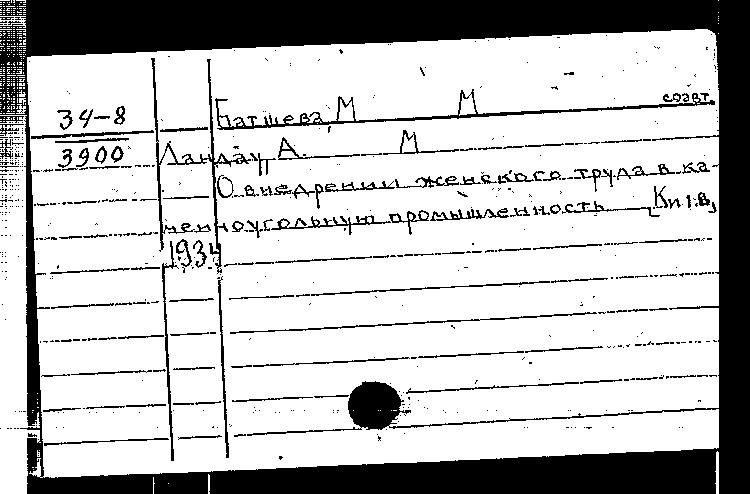 34-8 Батшева, М М соавт.
3900 Ландау, А. М
О внедрении женского труда в ка-
менноугольную промышленность [Кп 1.в,
1934